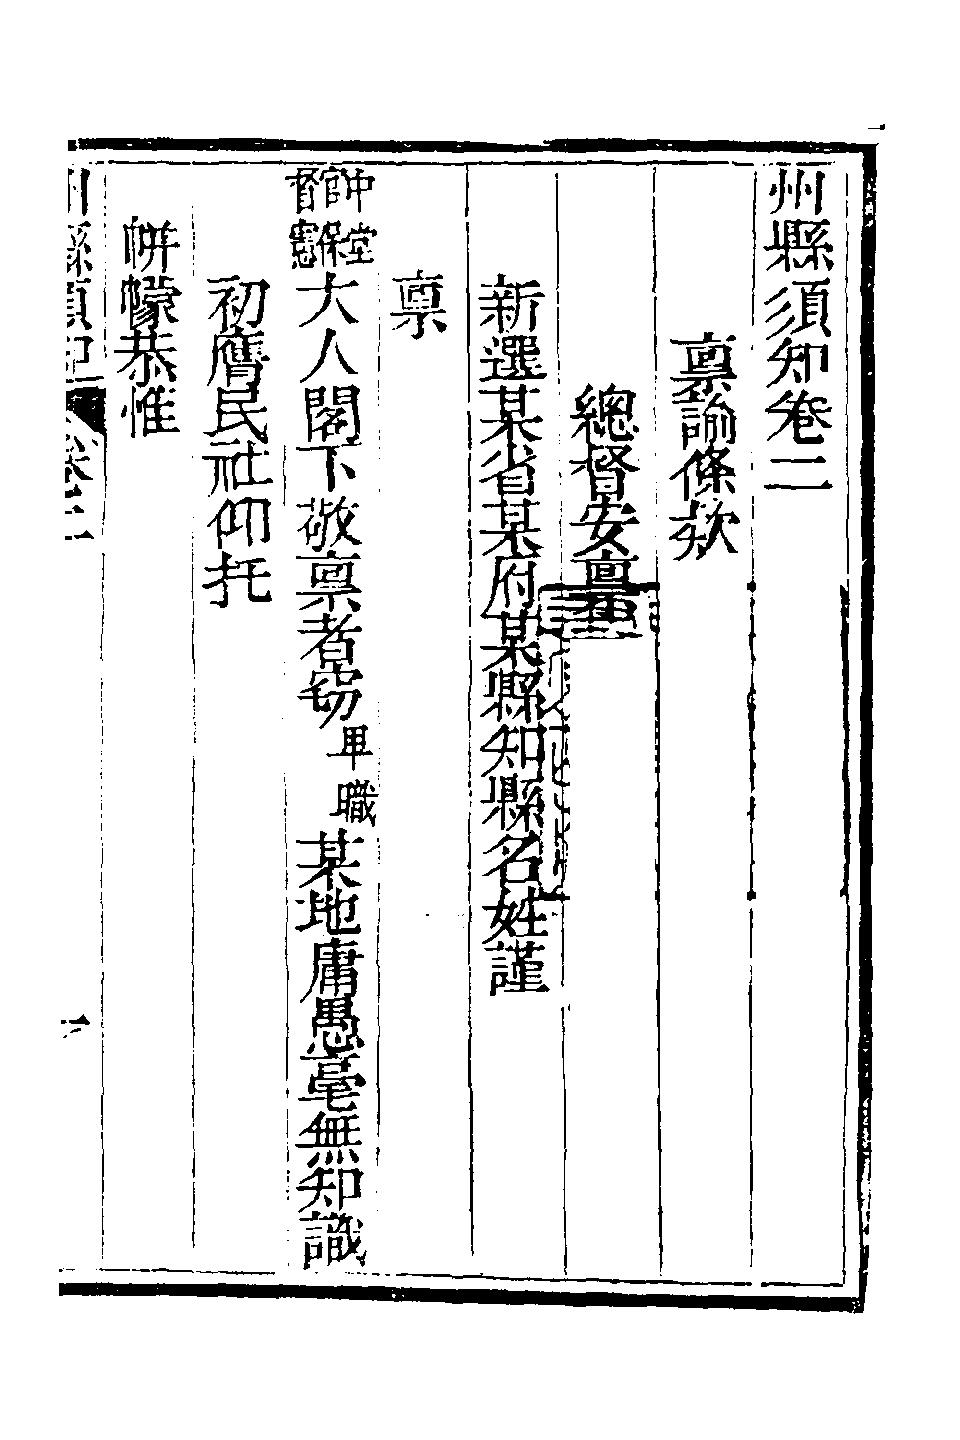 州縣須知卷二
稟諭條款
總督安稟
新選某省某府某縣知縣名姓謹
稟
中堂宮保督憲大人閣下敬稟者窃卑職某地庸愚毫無知識
初膺民社仰托
帡幪恭惟
州縣須知 卷二